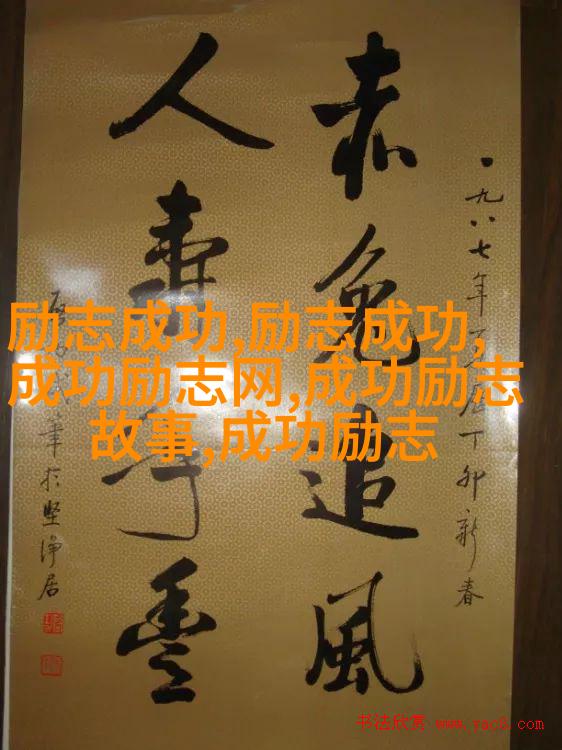 一九八七年丁卯新春
赤兔追風
人寿年豐
筆於坚净居
励志成功,励志成功,
成功励志网,成功励志
故事,成功励志
书法欣赏 www.yac8.com